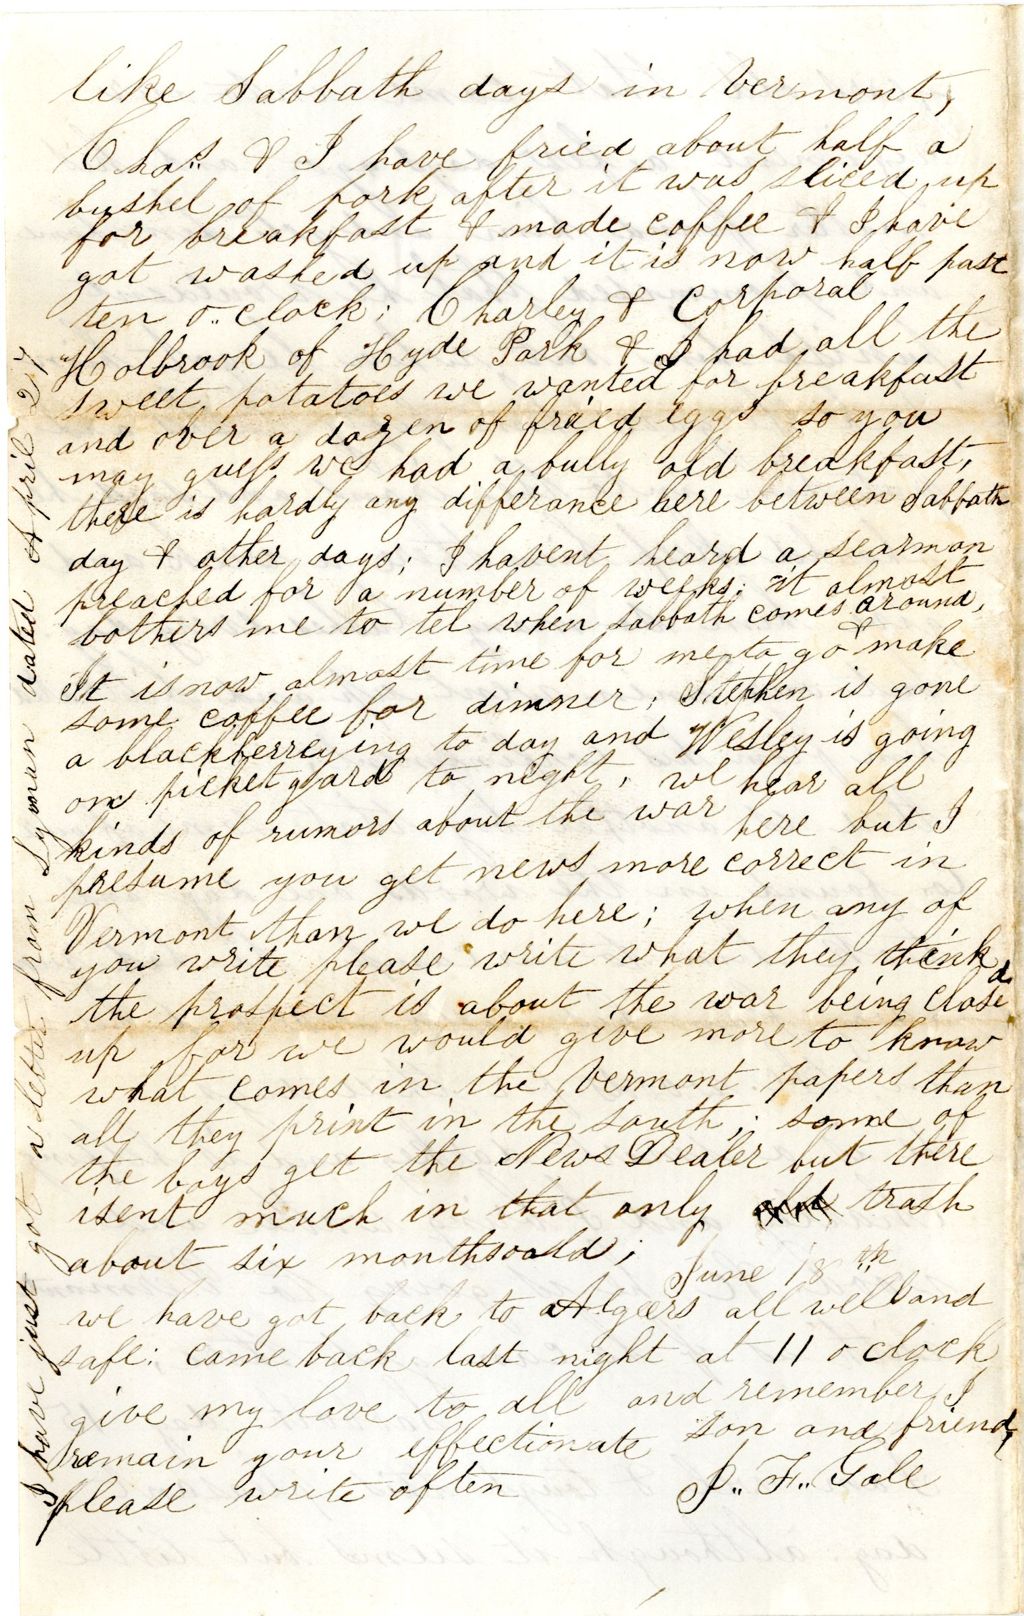 like Sabbath days in Vermont,
Chas & I have fried about half a
bushel of pork after it was sliced up
for breakfast & made coffee & I have
got washed up and it is now half past
ten o..clock: Charley & Corporal
Holbrook of Hyde Park & I had all the
sweet potatoes we wanted for breakfast
and over a dozen of fried eggs so you
may guess we had a bully old breakfast,
there is hardly any differance here between Sabbath
day & other days; I havent heard a searmon
preached for a number of weeks: it almost
bothers me to tel when sabbath comes around,
It is now almost time for me to go & make
some coffee for dinner; Stephen is gone
a blackberreying to day and Wesley is going
on picket gard to night, we hear all
kinds of rumors about the war here but I
presume you get news more correct in
Vermont than we do here; when any of
you write please write what they think
the prospect is about the war being closed
up for we would give more to know
what comes in the Vermont papers than
all they print in the south; some of
the boys get the News Dealer but there
isent much in that only trash
about six months oald;
June 18th
we have got back to Algiers all well and
safe: came back last night at 11 o clock
give my love to all and remember I
remain your effectionate son and friend,
please write often
J.. F.. Gale
I have just got a letter from Lyman dated April 27